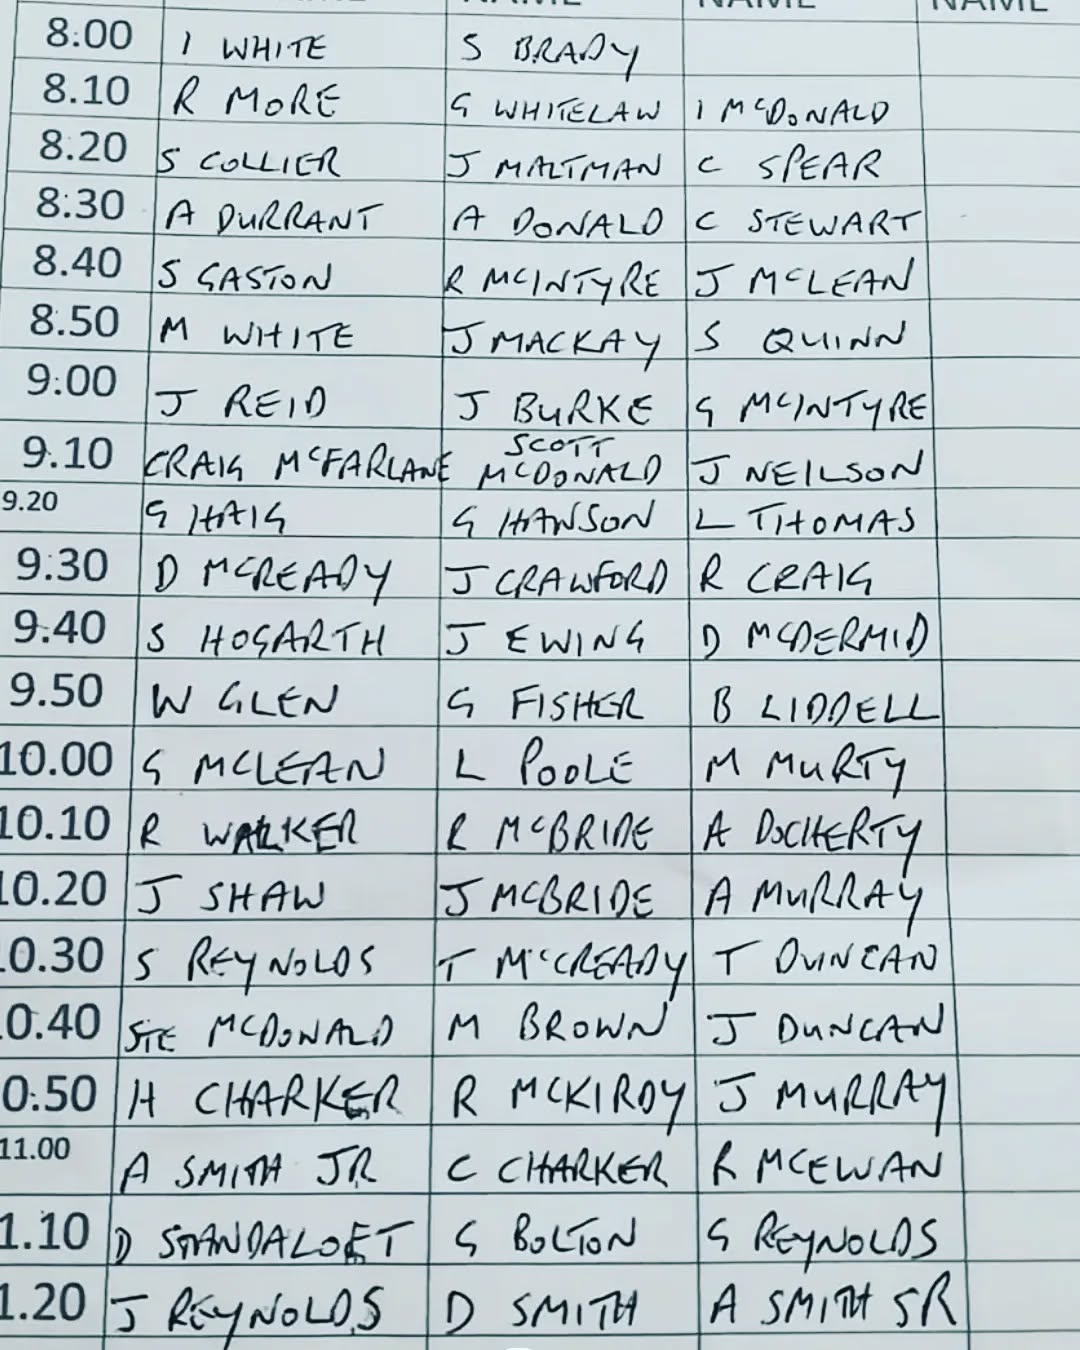 NAME NAME NAME
8:00 I WHITE S BRADY
8.10 R MORE G WHITELAW I MCDONALD
8.20 S COLLIER J MALTMAN C SPEAR
8:30 A DURRANT A DONALD C STEWART
8.40 S GASTON R MCINTYRE J MCLEAN
8.50 M WHITE J MACKAY S QUINN
9:00 J REID J BURKE G MCINTYRE
9.10 CRAIG MCFARLANE SCOTT MCDONALD J NEILSON
9.20 G HAIG G HANSON L THOMAS
9:30 D MCREADY J CRAWFORD R CRAIG
9.40 S HOGARTH J EWING D MCDERMID
9.50 W GLEN G FISHER B LIDDELL
10.00 G MCLEAN L POOLE M MURTY
10.10 R WALKER R MCBRIDE A DOCHERTY
10.20 J SHAW J MCBRIDE A MURRAY
0.30 S REYNOLDS T MCCREADY T DUNCAN
0.40 STE MCDONALD M BROWN J DUNCAN
0:50 H CHARKER R MCKIRDY J MURRAY
11.00 A SMITH JR C CHARKER R MCEWAN
1.10 D STANDALOFT G BOLTON G REYNOLDS
1.20 J REYNOLDS D SMITH A SMITH SR